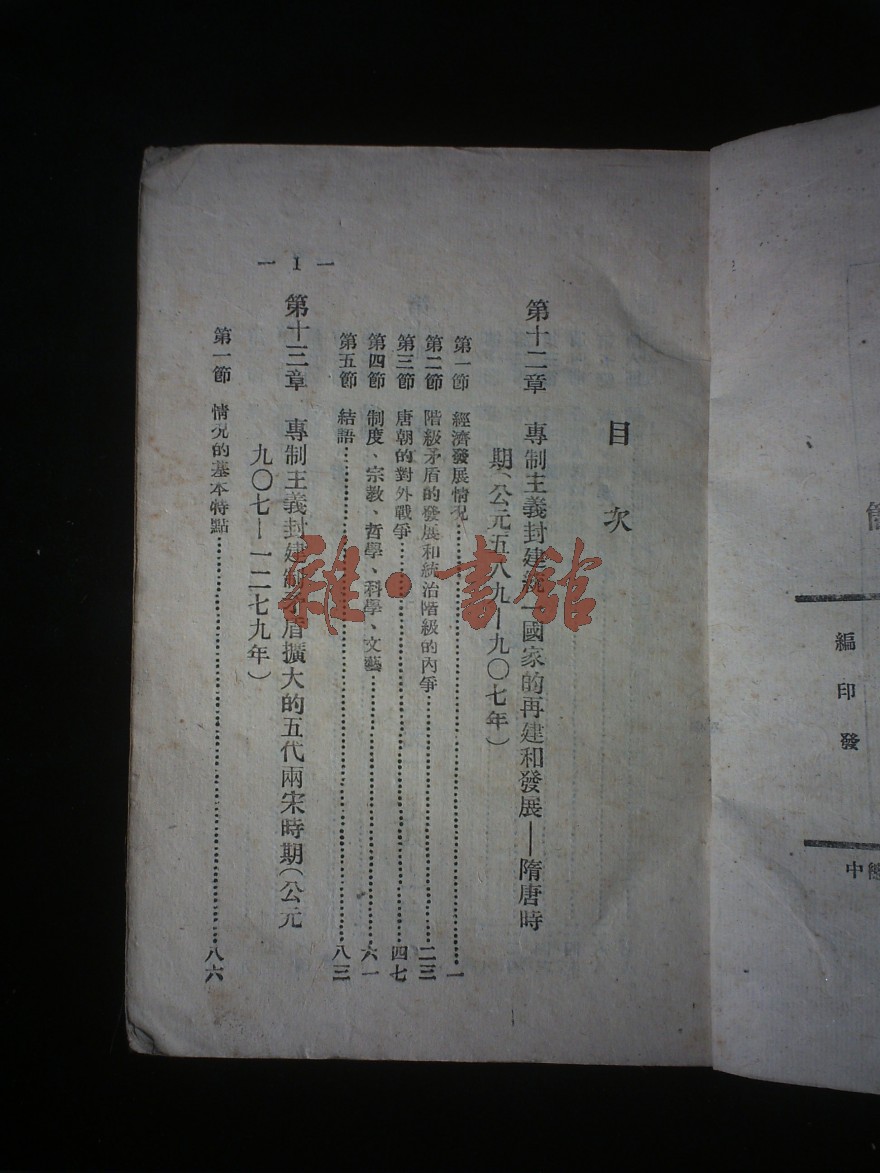 簡
編印發
中
目次
第十二章 專制主義封建統一國家的再建和發展——隋唐時
期(公元五八九—九〇七年)
第一節 經濟發展情况………一
第二節 階級矛盾的發展和統治階級的內爭………二三
第三節 唐朝的對外戰爭………四七
第四節 制度、宗教、哲學、科學、文藝………六一
第五節 結語………八三
第十三章 專制主義封建制矛盾擴大的五代兩宋時期(公元
九〇七—一二七九年)
第一節 情况的基本特點………八六
— 1 —
雜·書館